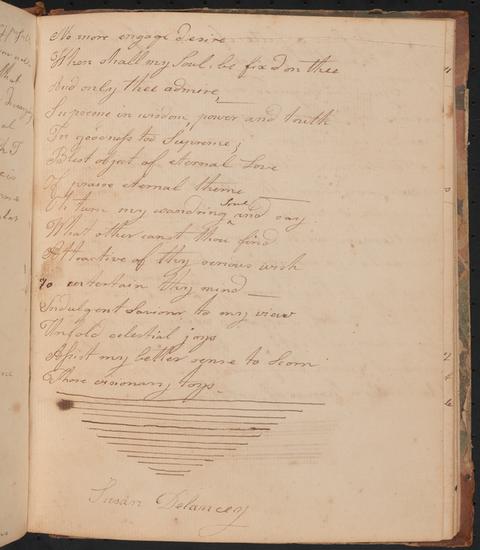 No more engage desire
When shall my Soul, be fix'd on thee
And only thee admire
Supreme in wisdom, power and truth
In goodness too Supreme;
Blest object of eternal Love
Of praise eternal theme
Oh turn my wandring Soul and say
What other canst thou find
Attractive of thy serious wish
To entertain thy mind
Indulgent Saviour to my view
Unfold celestial joys
Assist my better sense to Scorn
Those visionary toys.
Susan Delancey